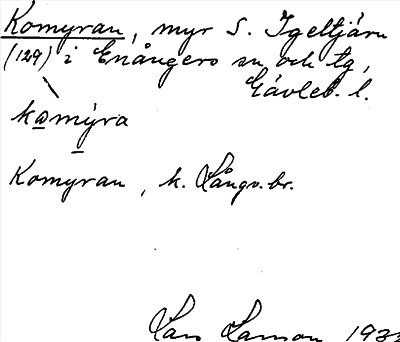 Komyran, myr S. Igeltjärn
(129) i Enångers sn och tg,
Gävleb. l.
kamýra
Komyran, k. Långv. br.
Lars Larson 193